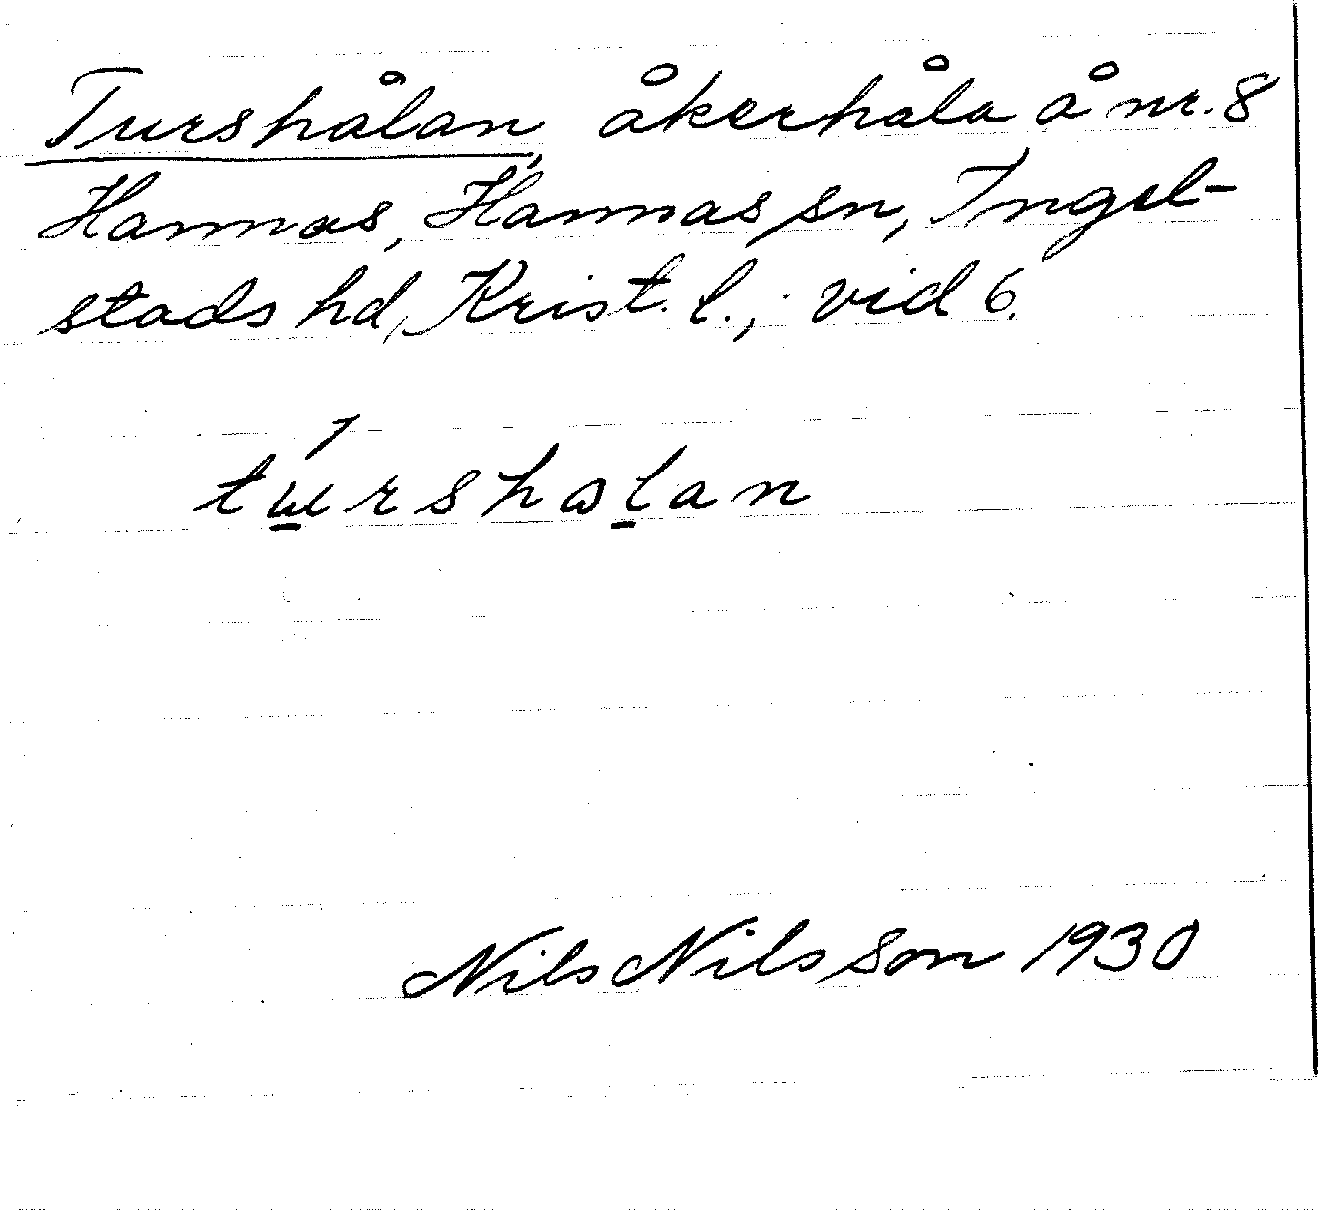 Turshålan, åkerhåla å nr. 8
Hannas, Hannas sn, Ingel-
stads hd, Krist. l.; vid 6.
tɯ̱́rshɷḻan
Nils Nilsson 1930